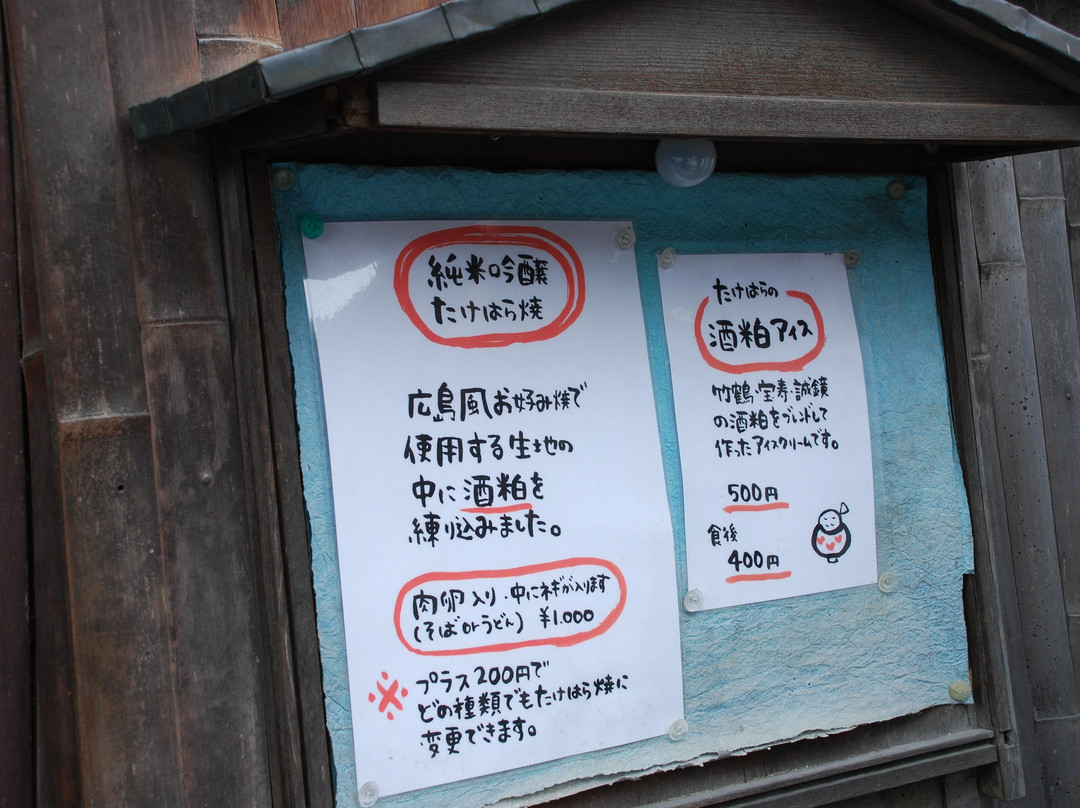 純米吟醸
たけはら焼
広島風お好み焼で
使用する生地の
中に酒粕を
練り込みました。
肉卵入り・中にネギが入ります
(そばorうどん) ¥1.000
※プラス200円で
どの種類でもたけはら焼に
変更できます。
たけはらの
酒粕アイス
竹鶴・宝寿・誠鏡
の酒粕をブレンドして
作ったアイスクリームです。
500円
食後
400円